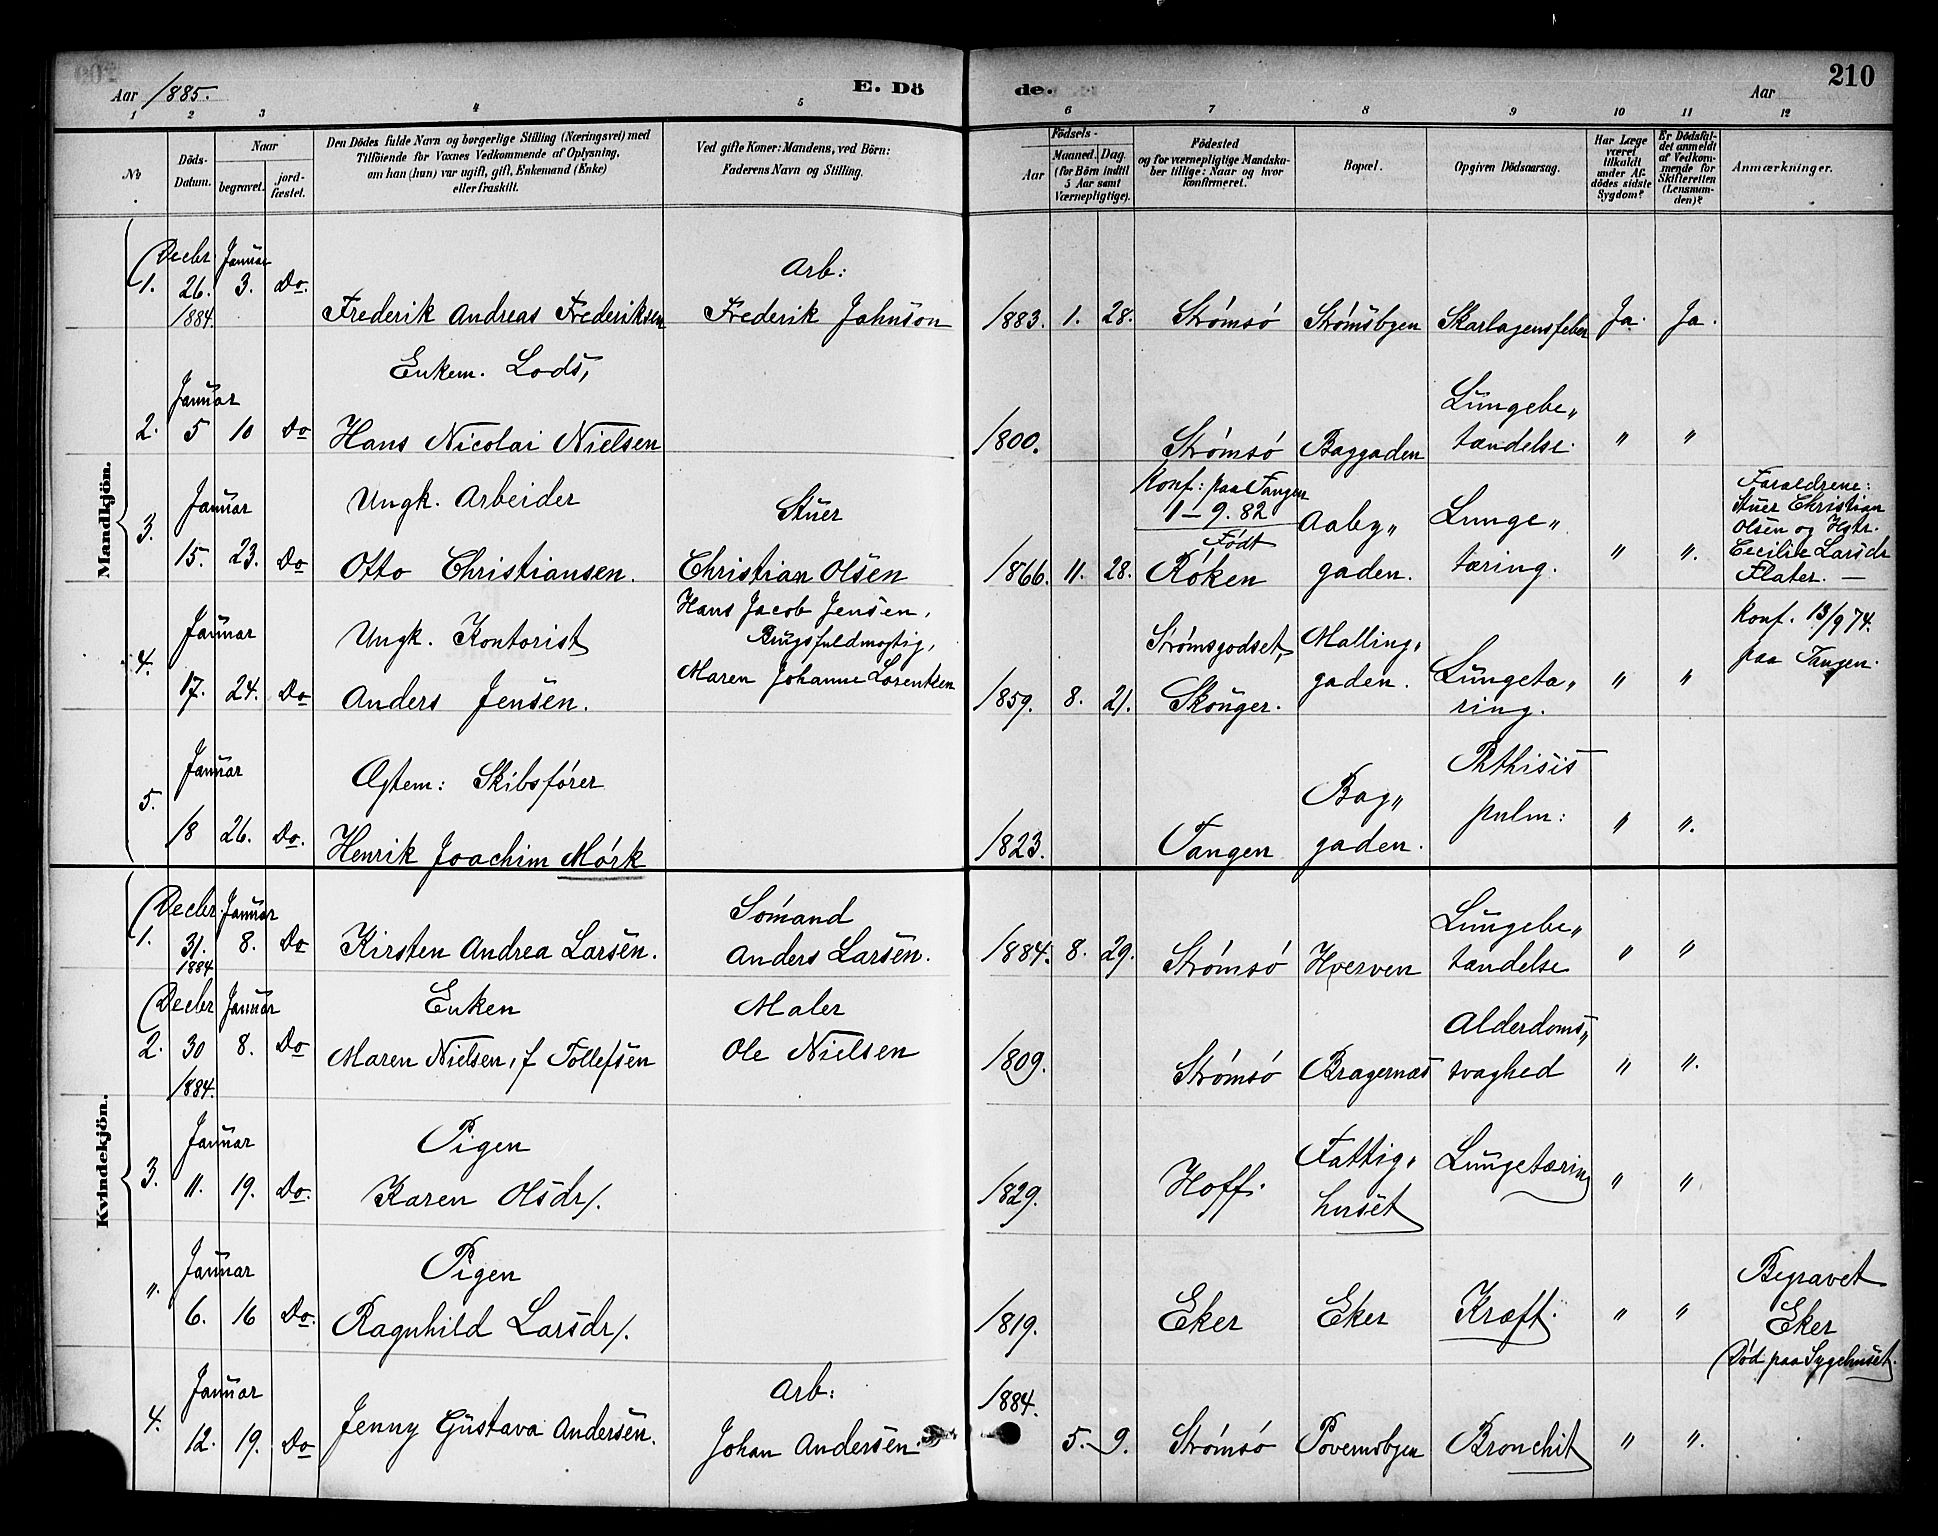 Aar 1885.
E. Dö
de.
Aar
210
1 2 3 4 5 6 7 8 9 10 11 12
No
Döds-Datum.
Naar
begravet.
jord-fæstet.
Den Dödes fulde Navn og borgerlige Stilling (Næringsvei) med
Tilföiende for Voxnes Vedkommende af Oplysning,
om han (hun) var ugift, gift, Enkemand (Enke)
eller fraskilt.
Ved gifte Koner: Mandens, ved Börn:
Faderens Navn og Stilling.
Födsels-
Aar
Maaned.
Dag.
(for Börn indtil
5 Aar samt
Værnepligtige).
Födested
og for værnepligtige Mandska-
ber tillige: Naar og hvor
konfirmeret.
Bopæl.
Opgiven Dödsaarsag.
Har Læge
været
tilkaldt
under Af-
dödes sidste
Sygdom?
Er Dödsfal-
det anmeldt
af Vedkom-
mende for
Skifteretten
(Lensman-
den)?
Anmærkninger.
Mandkjön.
1. Decbr 26. 1884. Januar 3. Do. Frederik Andreas Frederiksen Arb: Frederik Johnson 1883. 1. 28. Strømsø Strømsbyen Skarlagensfeber Ja. Ja.
2. Januar 5 10 Do Enkem. Lods, Hans Nicolai Nielsen 1800. Strømsø Baggaden Lungebe„ tændelse. „ „
3. Januar 15. 23. Do Ungk. Arbeider Otto Christiansen. Stuer Christian Olsen 1866. 11. 28. Konf: paa Tangen 1-9.82 Født Røken Aaby„ gaden. Lunge„ tæring. „ „. Foraldrene: Stuer Christian Olsen og Hstr. Cecilie Larsdr Flater. —
4. Januar 17. 24. Do Ungk. Kontorist Anders Jensen. Hans Jacob Jensen, Brugsfuldmægtig, Maren Johanne Lorentsen 1859. 8. 21. Strømsgodset, Skouger. Malling„ gaden. Lungetæ„ ring. „ „ Konf. 13/9 74. paa Tangen.
5. Januar 18 26. Do. Ægtem: Skibsfører Henrik Joachim Mørk 1823. Tangen Bag„ gaden. Phthisis pulm: „ „.
Kvindekjön.
1. Decbr. 31. 1884 Januar 8. Do Kirsten Andrea Larsen. Sømand Anders Larsen. 1884. 8. 29. Strømsø Hverven Lungebe„ tændelse „ „
2. Decbr 30 1884. Januar 8. Do Enken Maren Nielsen, f Tollefsen Maler Ole Nielsen 1809. Strømsø Bragernæs Alderdoms„ svaghed „ „.
3. Januar 11. 19. Do. Pigen Karen Olsdr/. 1829. Hoff. Fattig„ huset Lungetæring „ „
„. Januar 6. 16 Do. Pigen Ragnhild Larsdr/. 1819. Eker Eker Kræft. „ „ Begravet Eker Død paa Sygehuset.
4. Januar 12. 19. Do Jenny Gustava Andersen. Arb: Johan Andersen. 1884. 5. 9. Strømsø Povemsbyen Bronchit „ „.